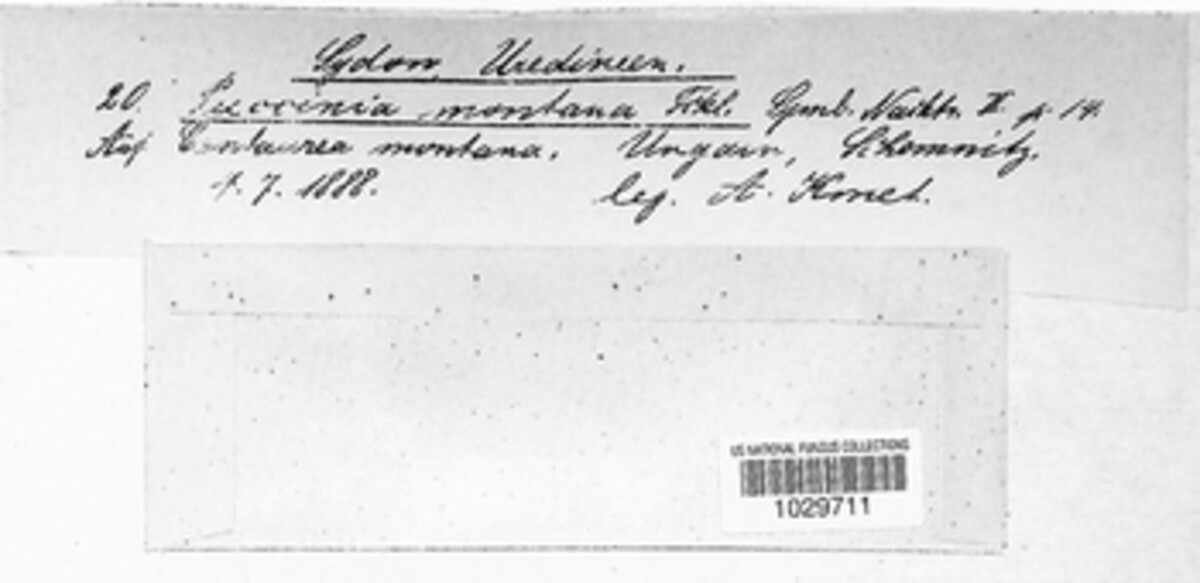 Sydow, Uredineen.
20. Puccinia montana Fckl. Symb. Nachtr. II p. 14.
Auf Centaurea montana. Ungarn, Schemnitz.
1. 7. 1888. leg. A. Kmet.
US NATIONAL FUNGUS COLLECTIONS
1029711